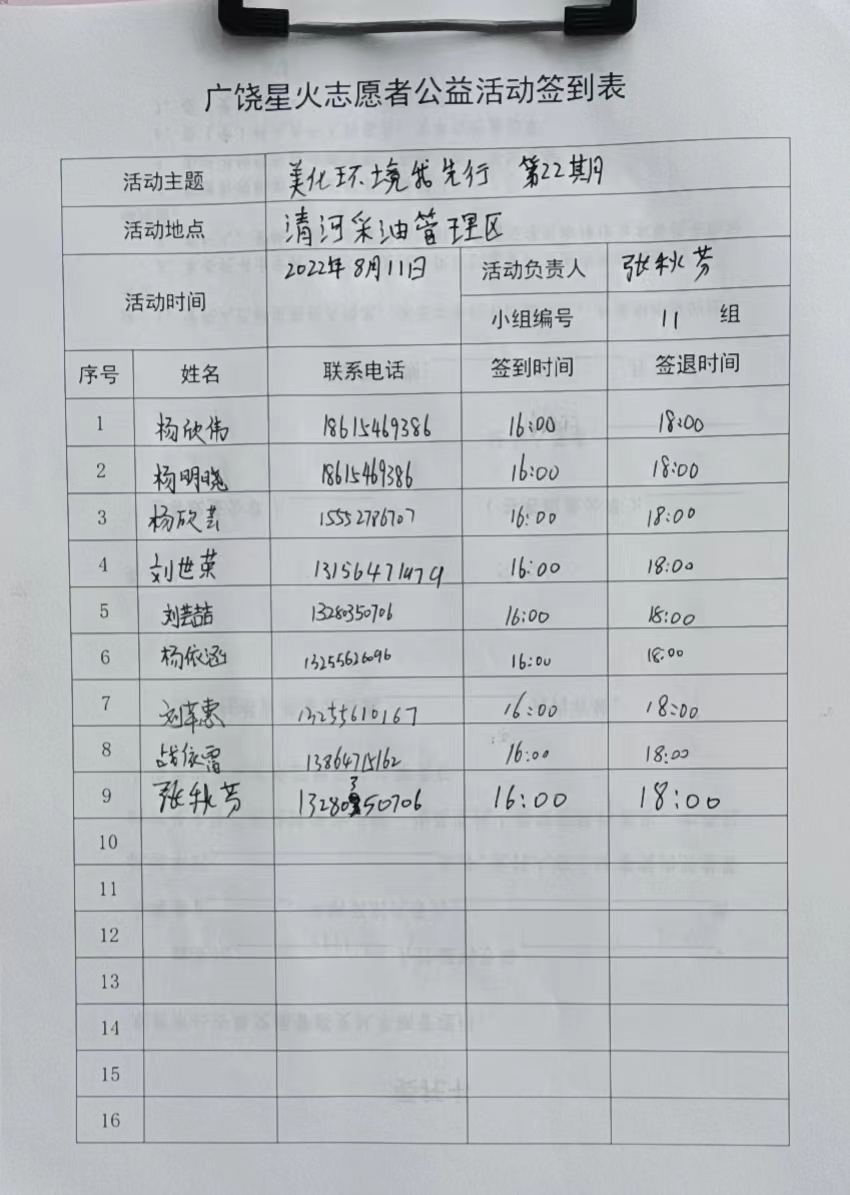 广饶星火志愿者公益活动签到表
活动主题 美化环境我先行 第22期
活动地点 清河采油管理区
活动时间 2022年8月11日 活动负责人 张秋芳
小组编号 11 组
序号 姓名 联系电话 签到时间 签退时间
1 杨欣伟 18615469386 16:00 18:00
2 杨明晓 18615469386 16:00 18:00
3 杨欣芸 15552786707 16:00 18:00
4 刘世荣 16:00 18:00
5 刘喆 13280350706 16:00 18:00
6 杨依涵 13255626096 16:00 18:00
7 13255610167 16:00 18:00
8 战依雷 13864715162 16:00 18:00
9 张秋芳 13280350706 16:00 18:00
10
11
12
13
14
15
16